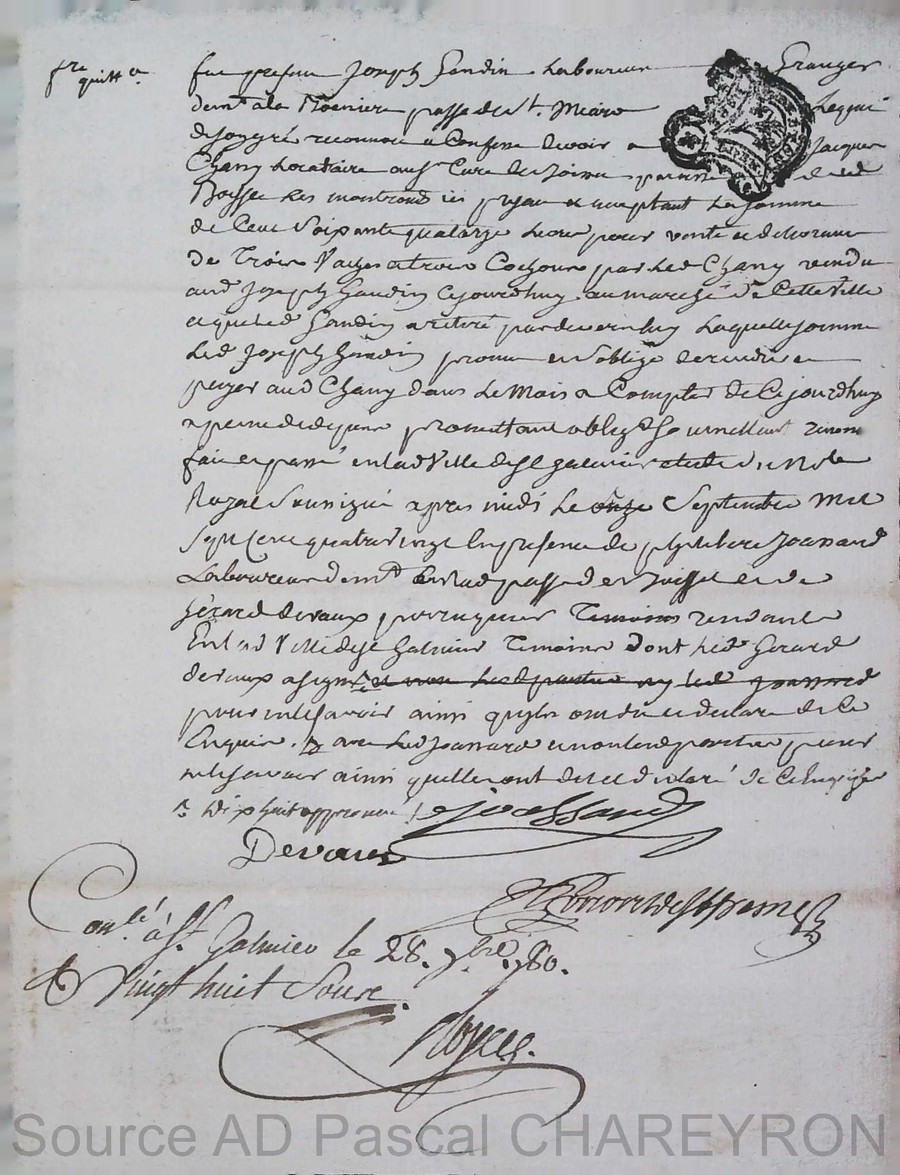 quitt.ce
fut present Joseph Gaudin Laboureur Granger
dem.t a la passe de St. Lequel
de son gré reconnait et Confesse devoir a Jacques
Chany Locataire au Sr Curé de
Boisset Les montrond ici present et acceptant La somme
de Cent Soixante quatorze Livres pour vente et delivrance
de Trois Vaches et trois Cochons par Led Chany vendu
aud Joseph Gaudin Cejourdhuy au marché de Cette Ville
et que Led Gaudin a retiré pardevers luy Laquelle somme
Led Joseph Gaudin promet et s'oblige de rendre et
payer aud Chany dans Le Mois a Compter de Cejourdhuy
a peine de depens promettant oblig.t Soumettant renon
fait et passé en lad Ville de St galmier etude du No.re
Royal Soussigné apres midi Le onze Septembre Mil
Sept Cent quatre vingt En presence de Joassard
Laboureur dem.t en lad passe de Boisset et de
Gérard devaux perruquier Temoins residants
En lad Ville de St Galmier Temoins dont Led Gerard
devaux a signé et non Led parties ny led Joassard
pour ne le savoir ainsi quils ont dit et declaré de Ce
Enquis. avec Led Joassard et non Led parties pour
ne le savoir ainsi quelles ont dit et declaré de Ce Enquises
dix huit approuvé joassard
Devaux
Con.lé à St. Galmier le 28. 7bre. 1780.
Vingt huit Sous.
Source AD Pascal CHAREYRON